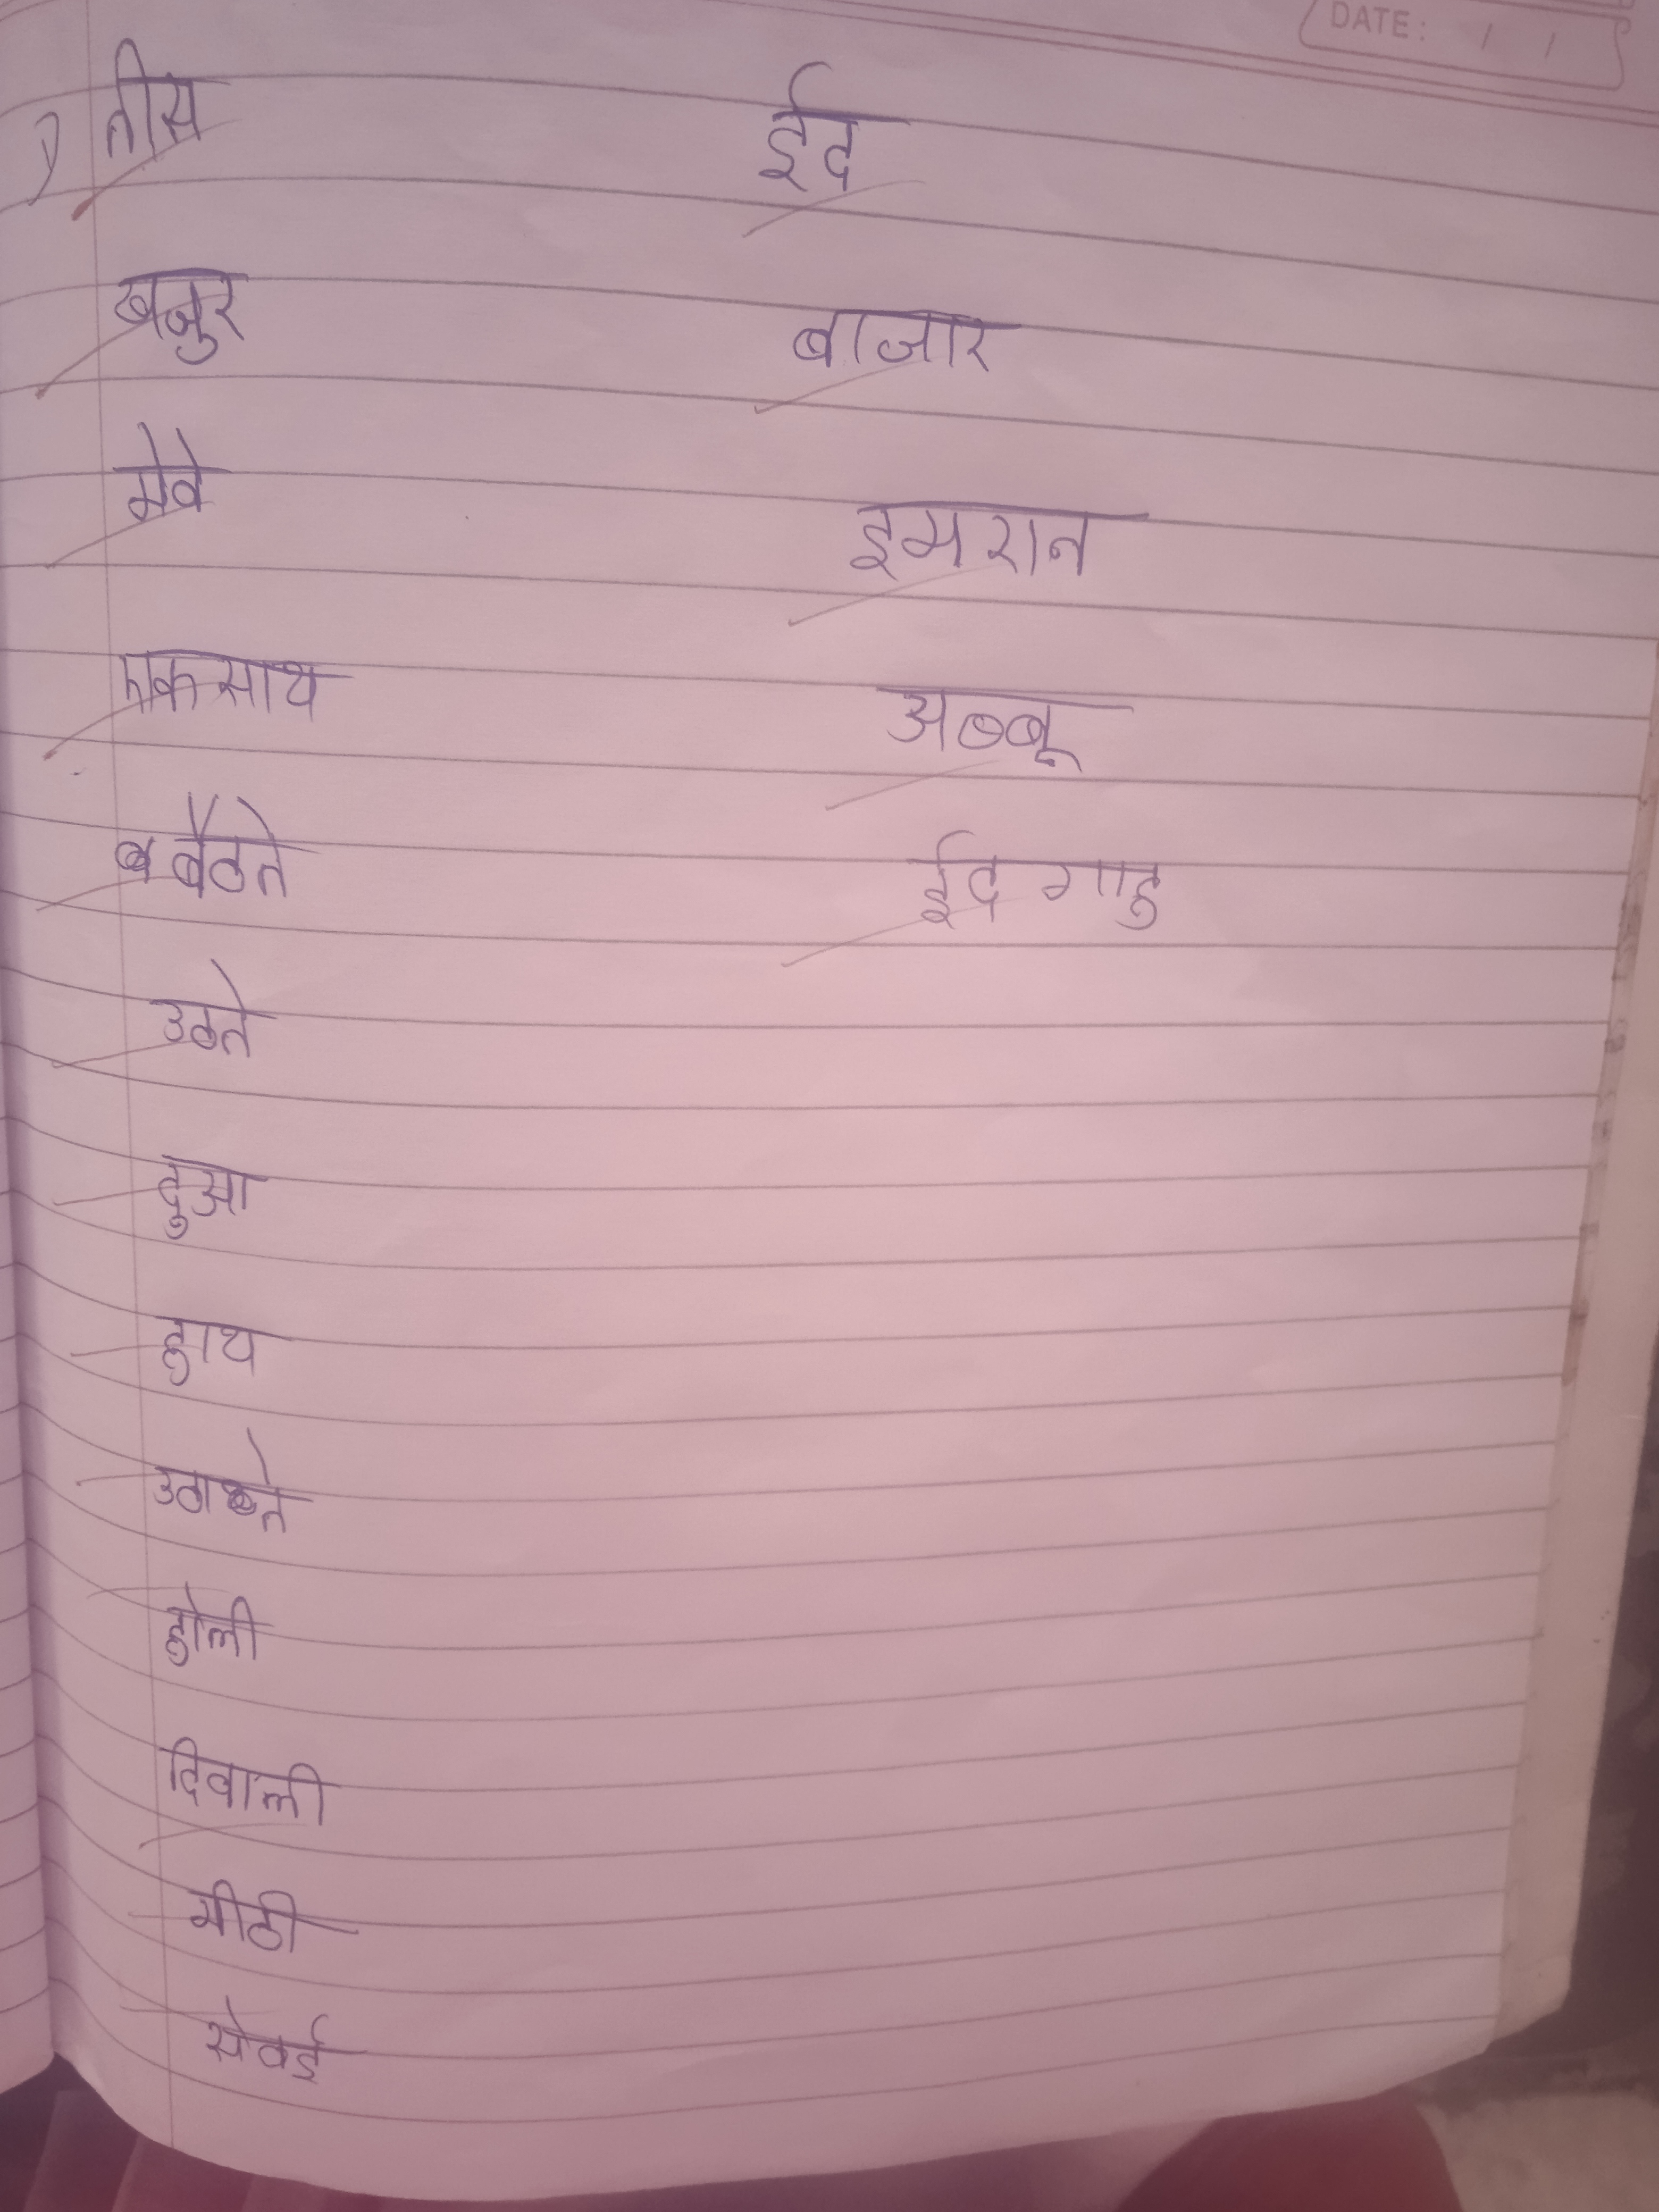 DATE: / /
तीस
ईद
खजुर
बाजार
मेवे
इमरान
एक साथ
अब्बू
बैठते
ईद गाह
उठते
दुआ
हाथ
उठाते
होली
दिवाली
मीठी
सेवई